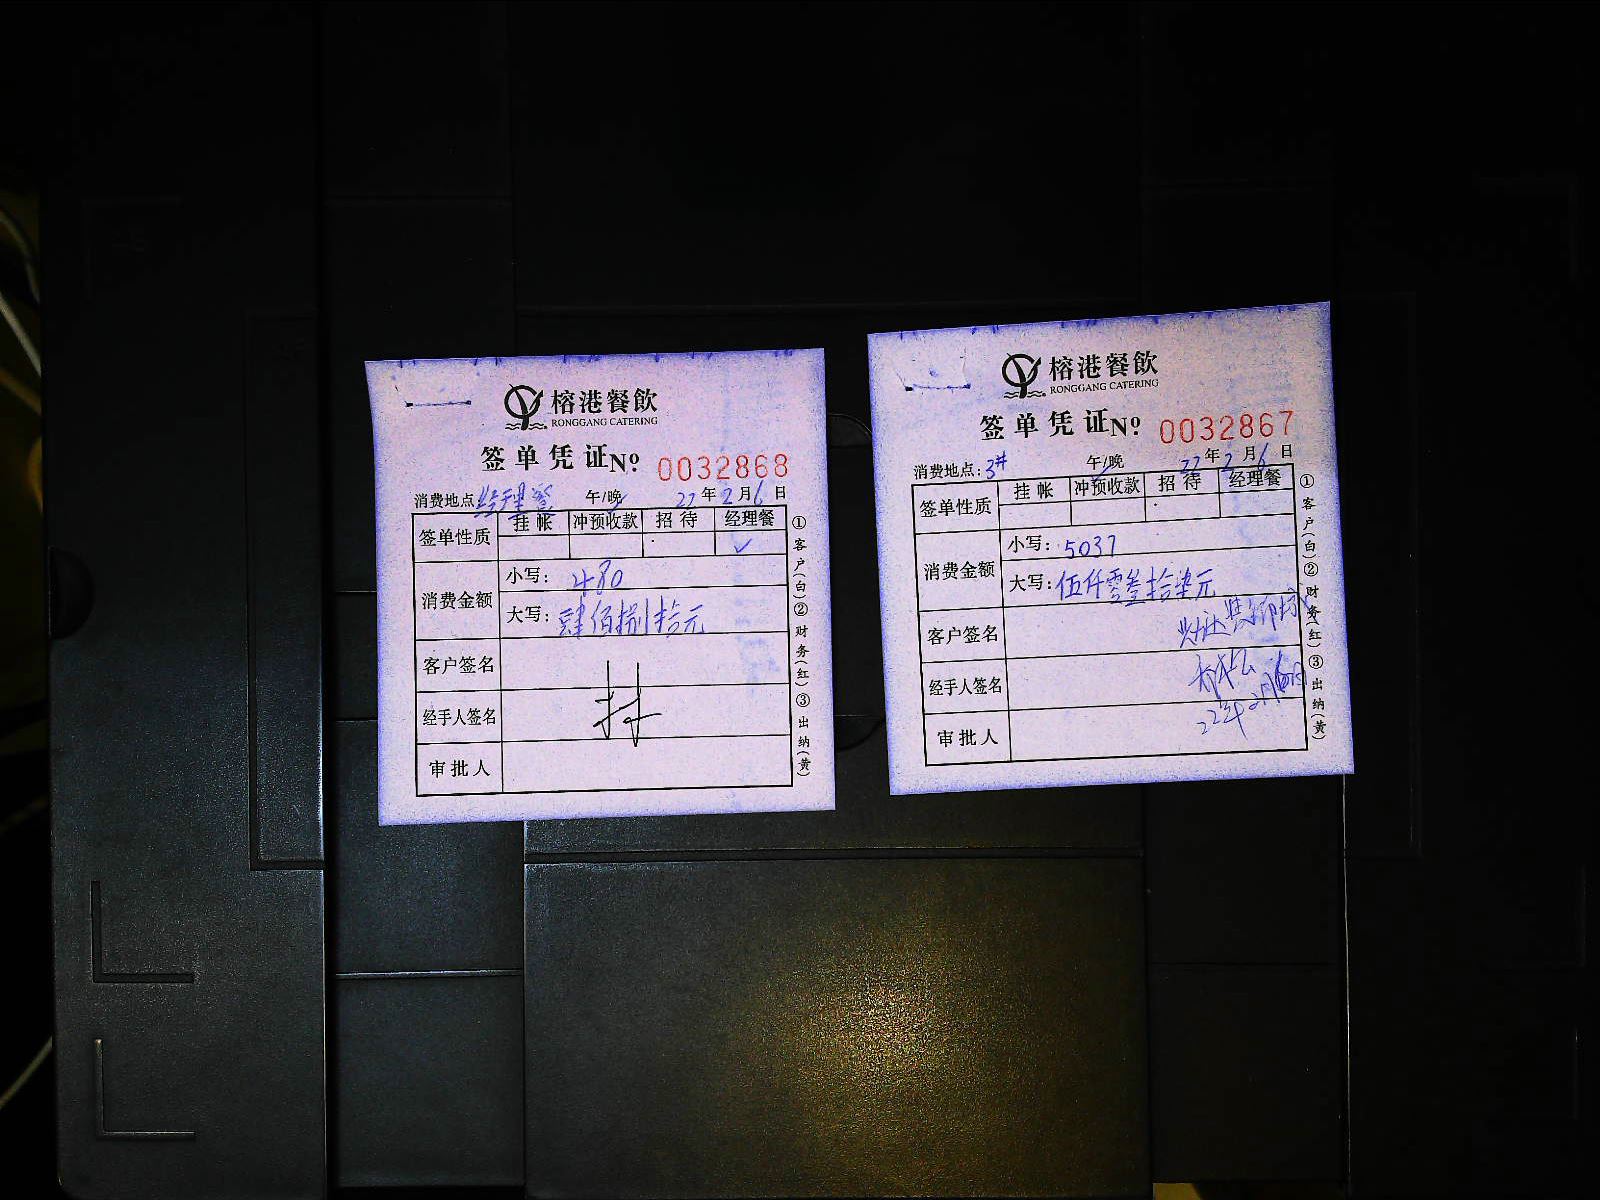 榕港餐飲
RONGGANG CATERING
签单凭证 No. 0032868
消费地点 经理餐 午/晚 22年2月6日
签单性质 挂帐 冲预收款 招待 经理餐
✓
消费金额 小写: 480
大写: 肆佰捌拾元
客户签名
经手人签名
审批人
①客户(白)②财务(红)③出纳(黄)
榕港餐飲
RONGGANG CATERING
签单凭证 No. 0032867
消费地点: 3# 午/晚 22年2月6日
签单性质 挂帐 冲预收款 招待 经理餐
消费金额 小写: 5037
大写: 伍仟零叁拾柒元
客户签名
经手人签名
22年2月6日
审批人
①客户(白)②财务(红)③出纳(黄)